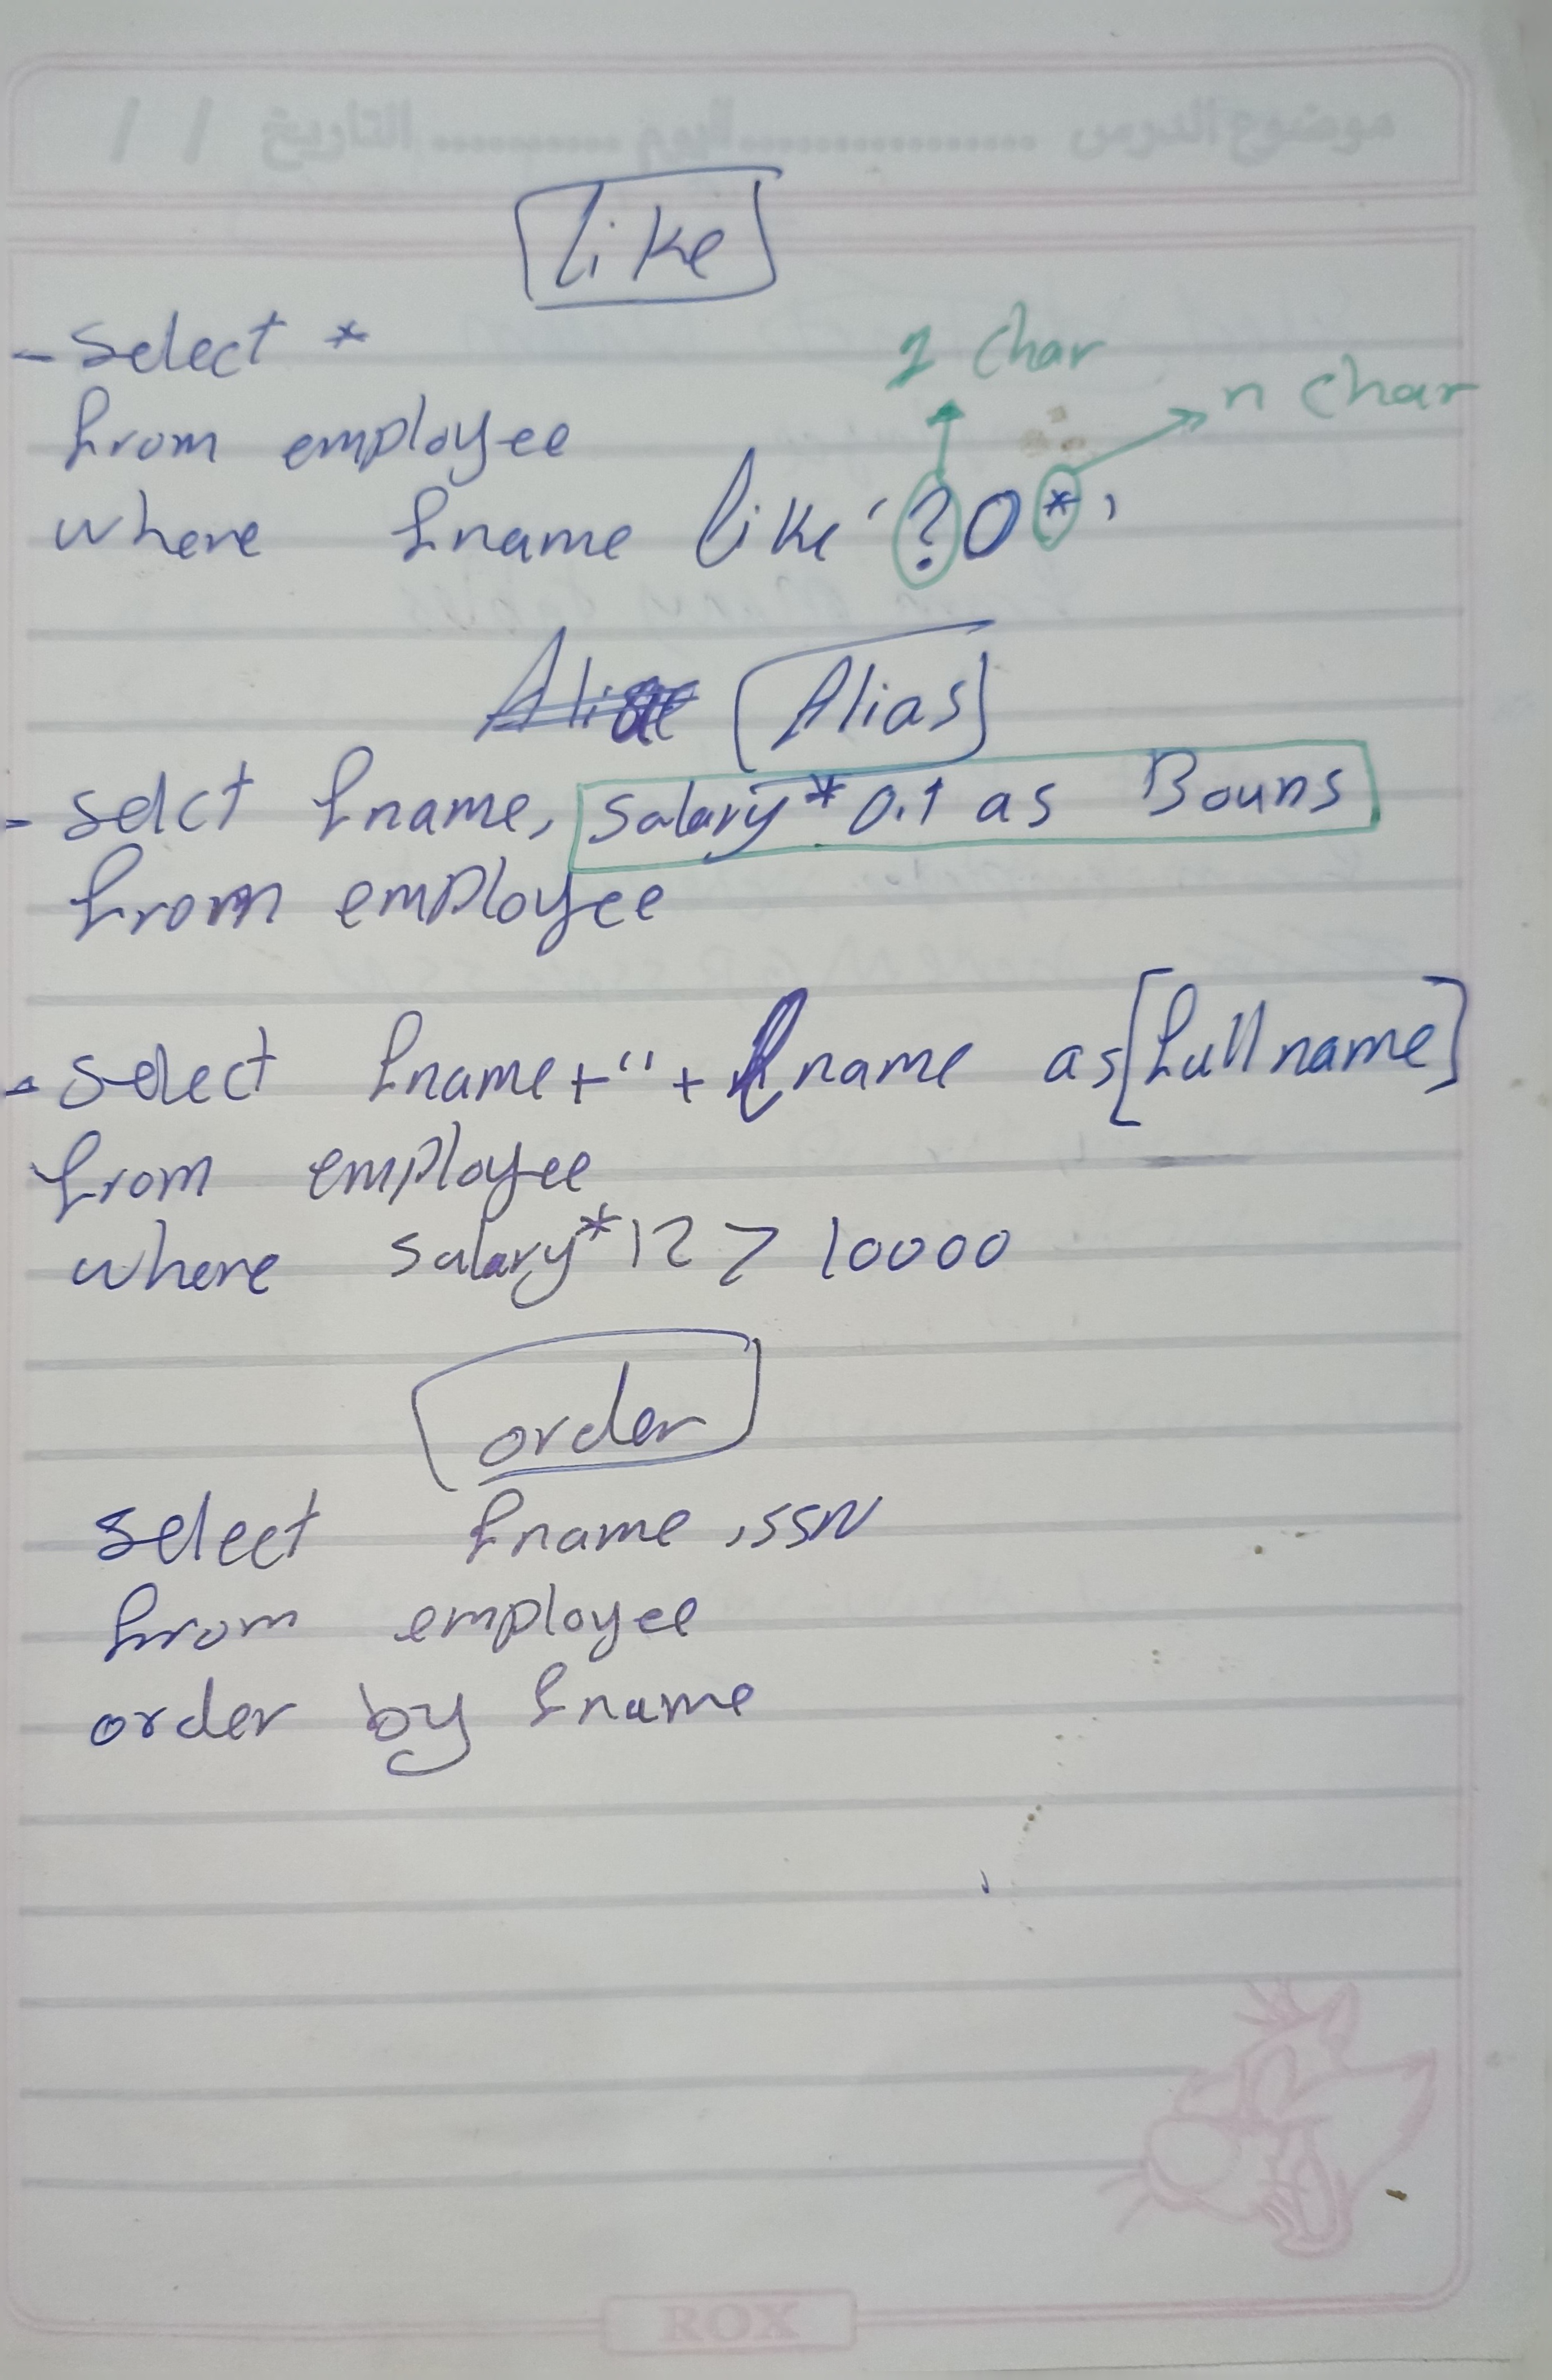 موضوع الدرس ................ اليوم ........... التاريخ / /
like
- select *
from employee
where fname like '?O*'
1 char
n char
Alias
- selct fname, salary*0.1 as Bouns
from employee
- select fname+''+lname as [full name]
from employee
where salary*12 > 10000
order
select fname, SSN
from employee
order by fname
ROX